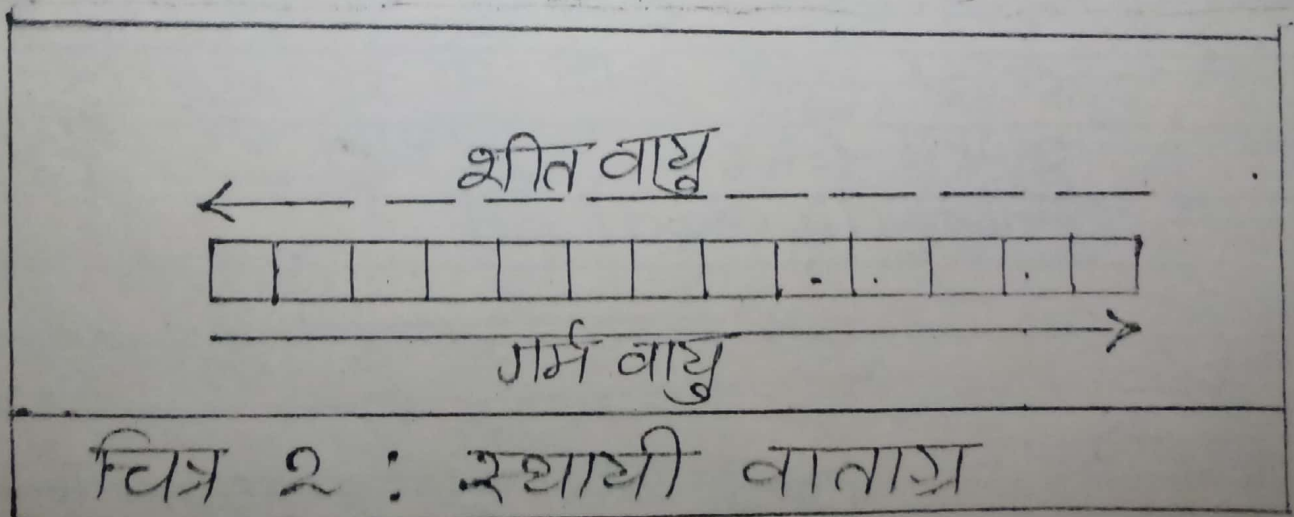 शीत वायु
गर्म वायु
चित्र २ : स्थायी वाताग्र